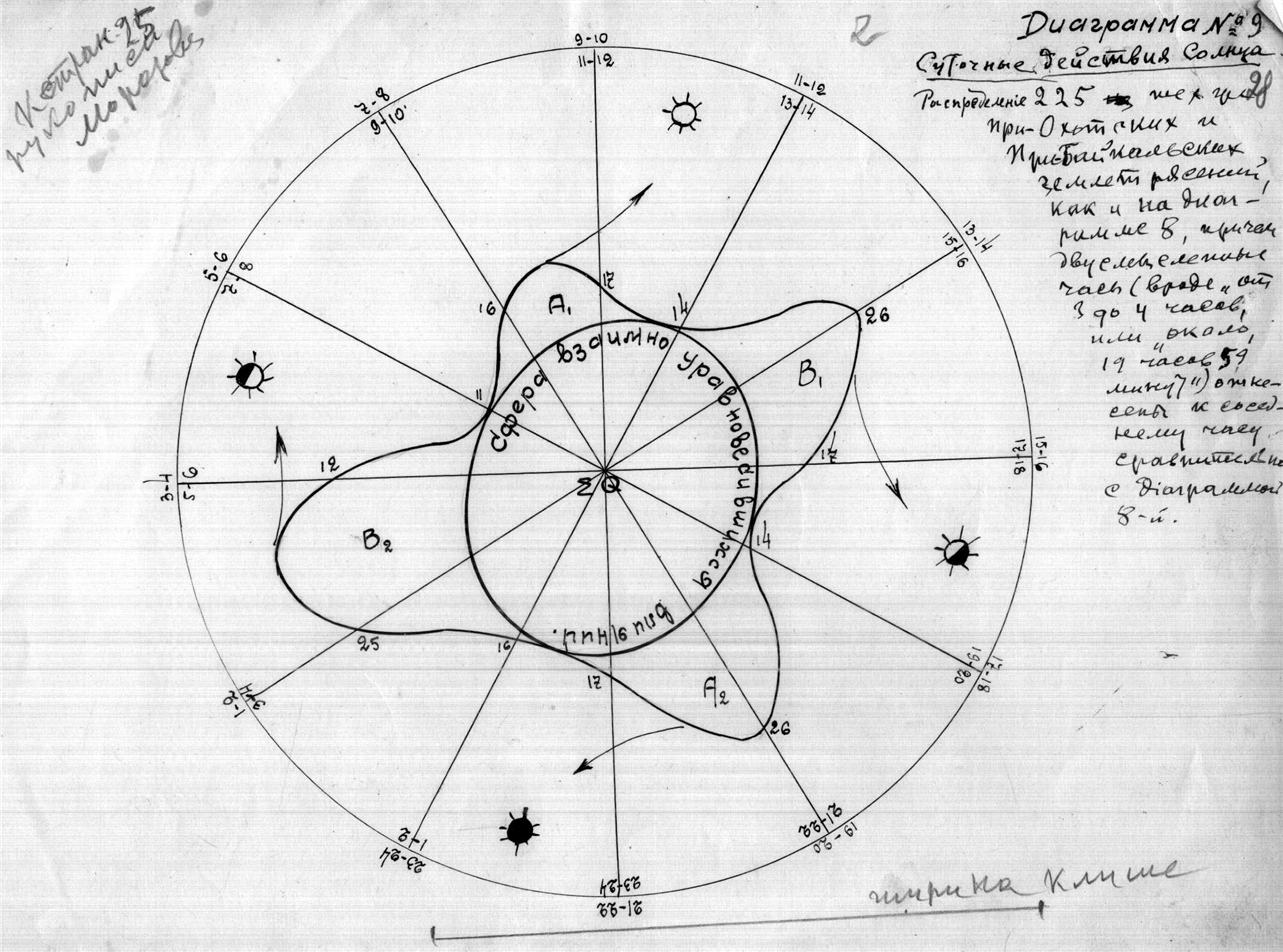 К стран. 25
рукописи
Морозова
2
Диаграмма № 9
28
Суточные действия Солнца
Распределение 225 тех
При-Охотских и
Прибайкальских
землетрясений,
как и на диаг-
рамме 8, причем
двусмысленные
часы (вроде „от
3 до 4 часов,
или „около,
19 часов 59
минут") отне-
сены к сосед-
нему часу
сравнительно
с диаграммой
8-й.
9-10
11-12
11-12
13-14
13-14
15-16
15-16
17-18
17-18
19-20
19-20
21-22
21-22
23-24
23-24
1-2
1-2
3-4
3-4
5-6
5-6
7-8
7-8
9-10
16
A₁
17
14
26
B₁
17
14
26
A₂
17
16
25
B₂
12
11
Сфера взаимно уравновесившихся влияний.
Σ Q
ширина клише